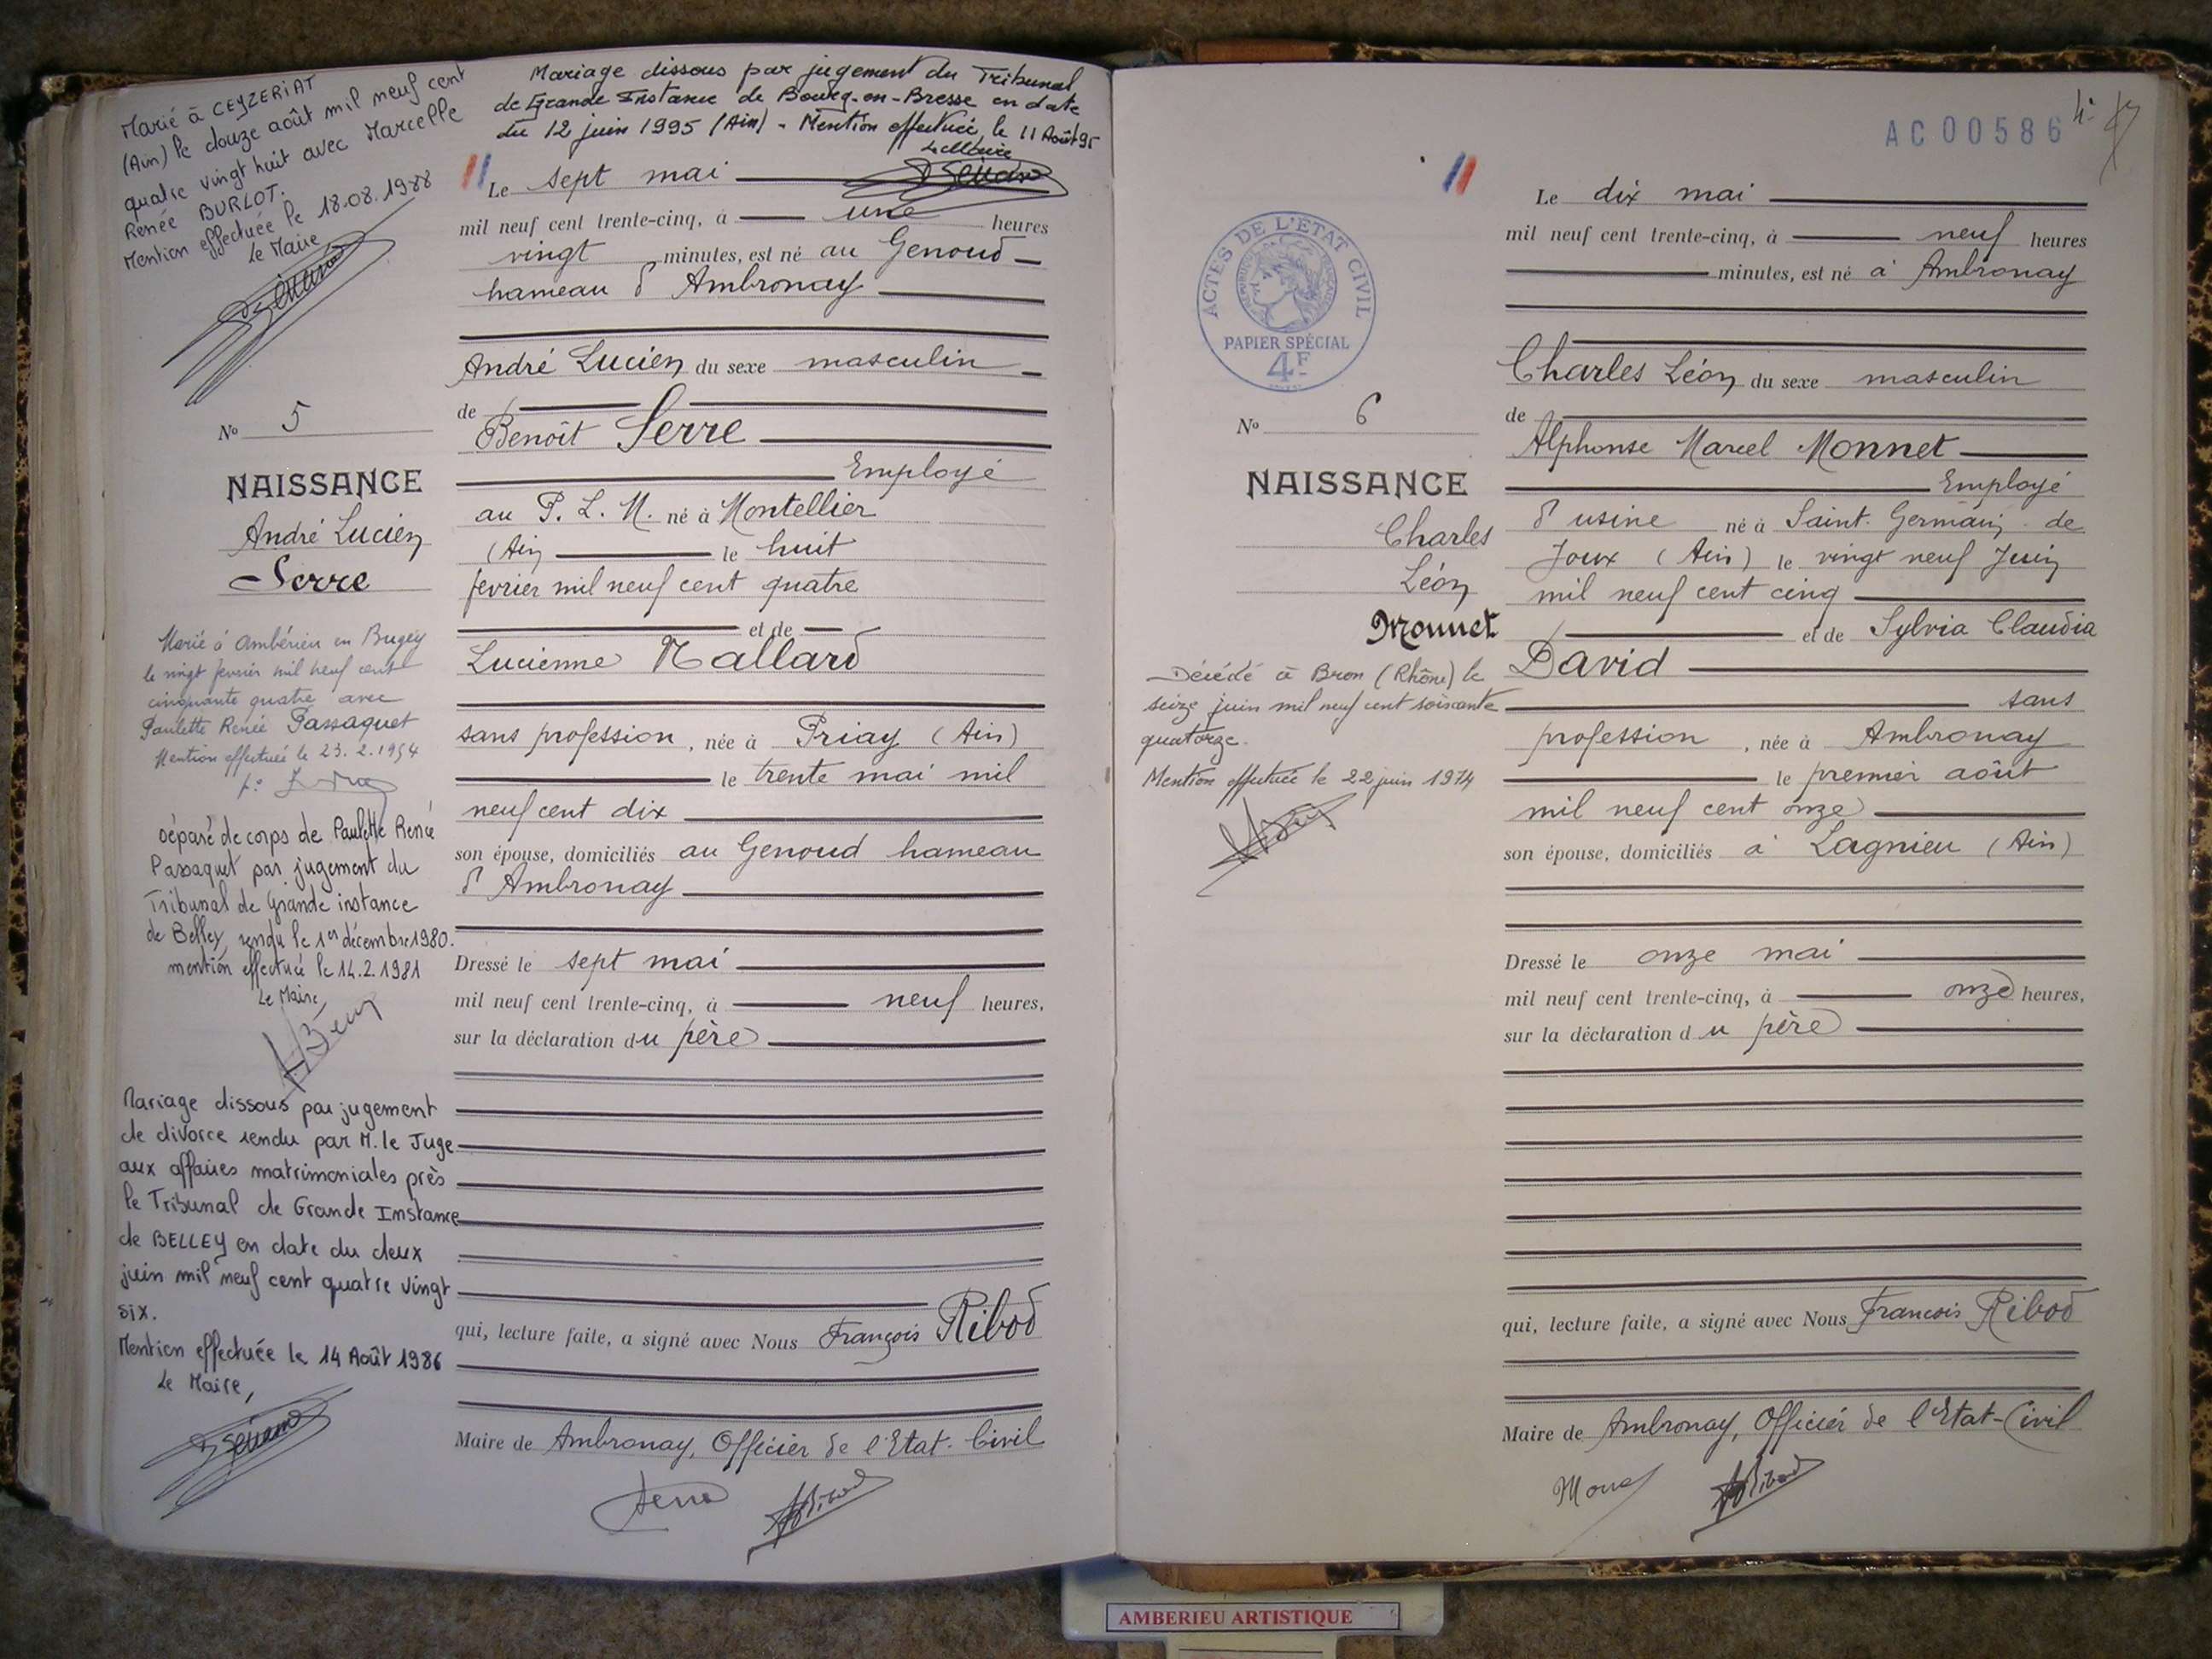 Marié à CEYZERIAT
(Ain) le douze août mil neuf cent
quatre vingt huit avec Marcelle
Renée BURLOT.
Mention effectuée le 18.08.1988
Le Maire
Mariage dissous par jugement du Tribunal
de Grande Instance de Bourg-en-Bresse en date
du 12 juin 1995 (Ain) - Mention effectuée, le 11 Août 95
Le Maire
No 5
NAISSANCE
André Lucien
Serre
Marié à Ambérieu en Bugey
le vingt février mil neuf cent
cinquante quatre avec
Paulette Renée Passaquet
Mention effectuée le 23.2.1954
Séparé de corps de Paulette Renée
Passaquet par jugement du
Tribunal de Grande instance
de Belley, rendu le 1er décembre 1980.
mention effectuée le 14.2.1981
Le Maire,
Mariage dissous par jugement
de divorce rendu par M. le Juge
aux affaires matrimoniales près
le Tribunal de Grande Instance
de BELLEY en date du deux
juin mil neuf cent quatre vingt
six.
Mention effectuée le 14 Août 1986
Le Maire,
Le sept mai
mil neuf cent trente-cinq, à une heures
vingt minutes, est né au Genoud
hameau d'Ambronay
André Lucien du sexe masculin
de
Benoît Serre
Employé
au P. L. M. né à Montellier
(Ain) le huit
fevrier mil neuf cent quatre
et de
Lucienne Mallard
sans profession, née à Priay (Ain)
le trente mai mil
neuf cent dix
son épouse, domiciliés au Genoud hameau
d'Ambronay
Dressé le sept mai
mil neuf cent trente-cinq, à neuf heures,
sur la déclaration du père
qui, lecture faite, a signé avec Nous François Ribod
Maire de Ambronay, Officier de l'Etat-Civil
Serre
ARibod
AC 00586
ACTES DE L'ETAT CIVIL
PAPIER SPÉCIAL
4F
No 6
NAISSANCE
Charles
Léon
Monnet
Décédé à Bron (Rhône) le
seize juin mil neuf cent soixante
quatorze.
Mention effectuée le 22 juin 1974
Le dix mai
mil neuf cent trente-cinq, à neuf heures
minutes, est né à Ambronay
Charles Léon du sexe masculin
de
Alphonse Marcel Monnet
Employé
d'usine né à Saint-Germain-de
Joux (Ain) le vingt neuf Juin
mil neuf cent cinq
et de Sylvia Claudia
David
sans
profession, née à Ambronay
le premier août
mil neuf cent onze
son épouse, domiciliés à Lagnieu (Ain)
Dressé le onze mai
mil neuf cent trente-cinq, à onze heures,
sur la déclaration du père
qui, lecture faite, a signé avec Nous François Ribod
Maire de Ambronay, Officier de l'Etat-Civil
ARibod
AMBERIEU ARTISTIQUE